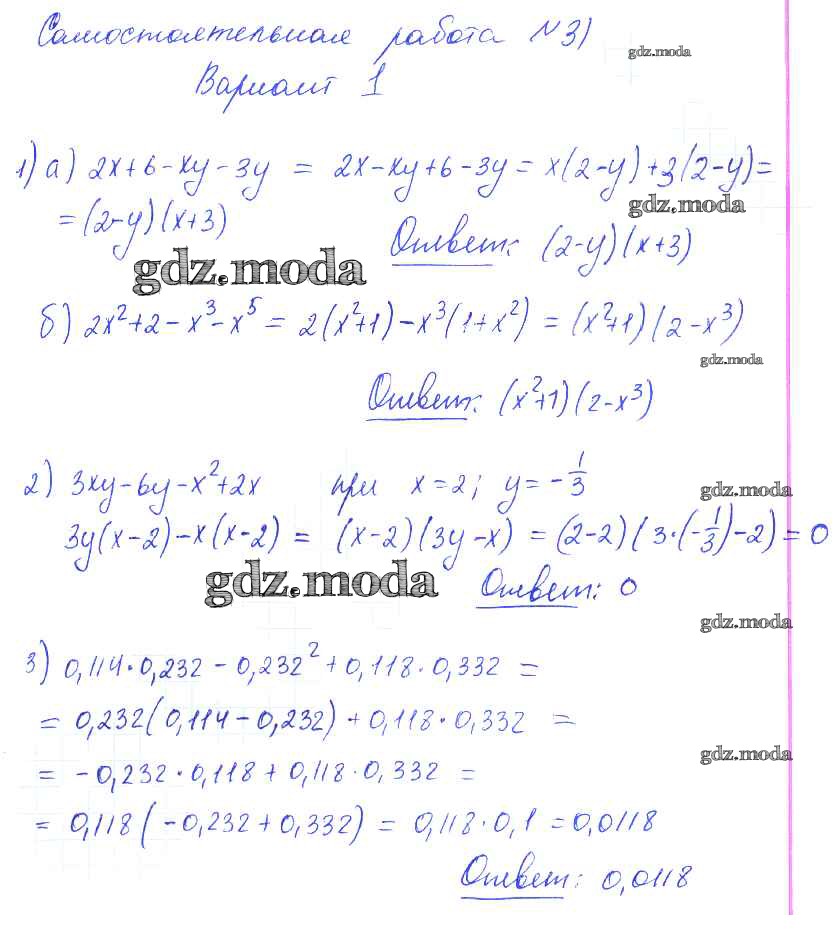 Самостоятельная работа №31
gdz.moda
Вариант 1
1) а) 2x+6-xy-3y = 2x-xy+6-3y = x(2-y)+3(2-y)=
=(2-y)(x+3)
gdz.moda
Ответ: (2-y)(x+3)
gdz.moda
б) 2x²+2-x³-x⁵ = 2(x²+1)-x³(1+x²) = (x²+1)(2-x³)
gdz.moda
Ответ: (x²+1)(2-x³)
2) 3xy-6y-x²+2x при x=2; y=-1/3
gdz.moda
3y(x-2)-x(x-2) = (x-2)(3y-x) = (2-2)(3·(-1/3)-2)=0
gdz.moda
Ответ: 0
gdz.moda
3) 0,114·0,232 - 0,232² + 0,118·0,332 =
= 0,232(0,114-0,232)+0,118·0,332 =
gdz.moda
= -0,232·0,118+0,118·0,332 =
= 0,118(-0,232+0,332) = 0,118·0,1 = 0,0118
Ответ: 0,0118